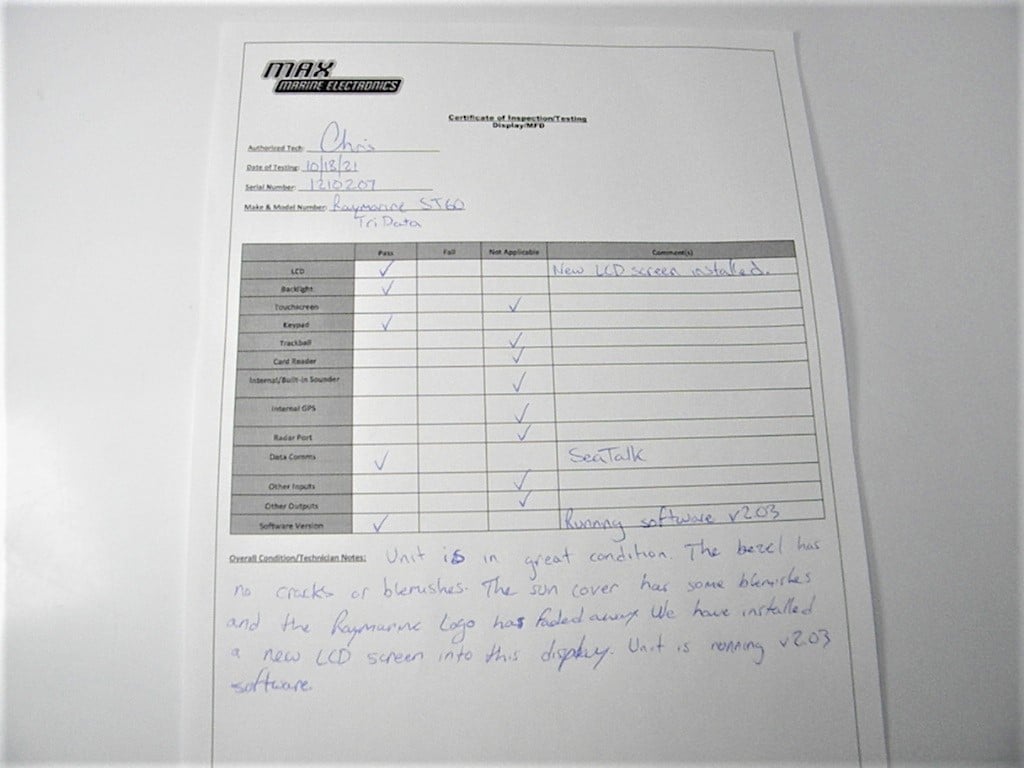 MAX
MARINE ELECTRONICS
Certificate of Inspection/Testing
Display/MFD
Authorized Tech: Chris
Date of Testing: 10/13/21
Serial Number: 1210207
Make & Model Number: Raymarine ST60
Tri Data
Pass Fail Not Applicable Comment(s)
LCD ✓ New LCD screen installed.
Backlight ✓
Touchscreen ✓
Keypad ✓
Trackball ✓
Card Reader ✓
Internal/Built-in Sounder ✓
Internal GPS ✓
Radar Port ✓
Data Comms ✓ SeaTalk
Other Inputs ✓
Other Outputs ✓
Software Version ✓ Running software v2.03
Overall Condition/Technician Notes: Unit is in great condition. The bezel has
no cracks or blemishes. The sun cover has some blemishes
and the Raymarine Logo has faded away. We have installed
a new LCD screen into this display. Unit is running v2.03
software.